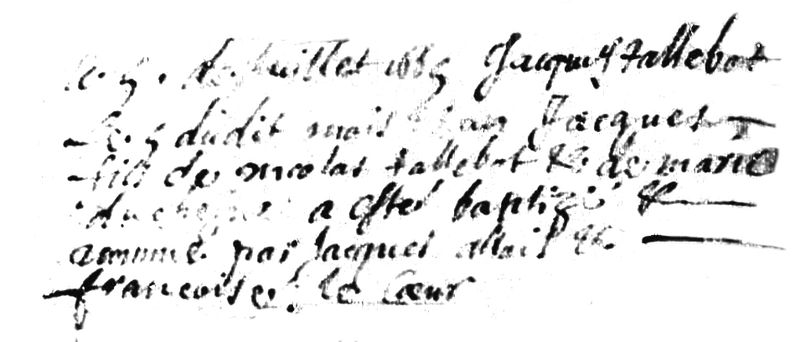 le 5e de Juillet 1669 Jacques tallebot
Le 5 dudit mois Jacques
fils de nicolas tallebot & de marie
a estes baptizé &
nommé par Jacques &
francoise le Cœur